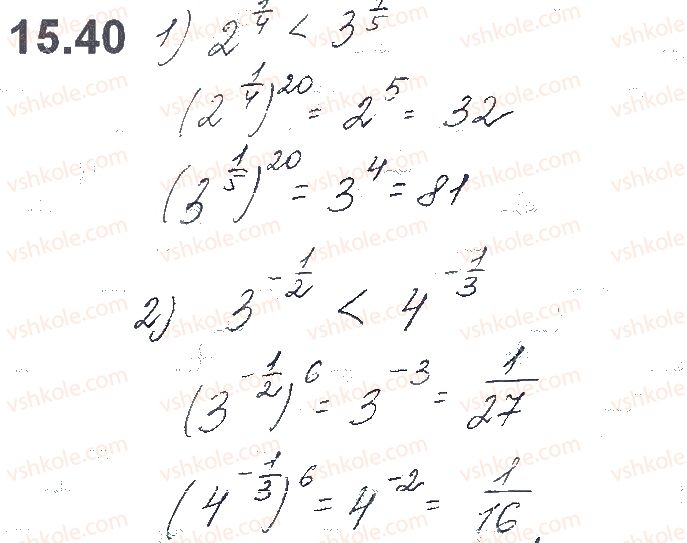 15.40 1) 2^{1/4} < 3^{1/5}
(2^{1/4})^{20} = 2^5 = 32
(3^{1/5})^{20} = 3^4 = 81
2) 3^{-1/2} < 4^{-1/3}
(3^{-1/2})^6 = 3^{-3} = 1/27
(4^{-1/3})^6 = 4^{-2} = 1/16.
vshkole.com